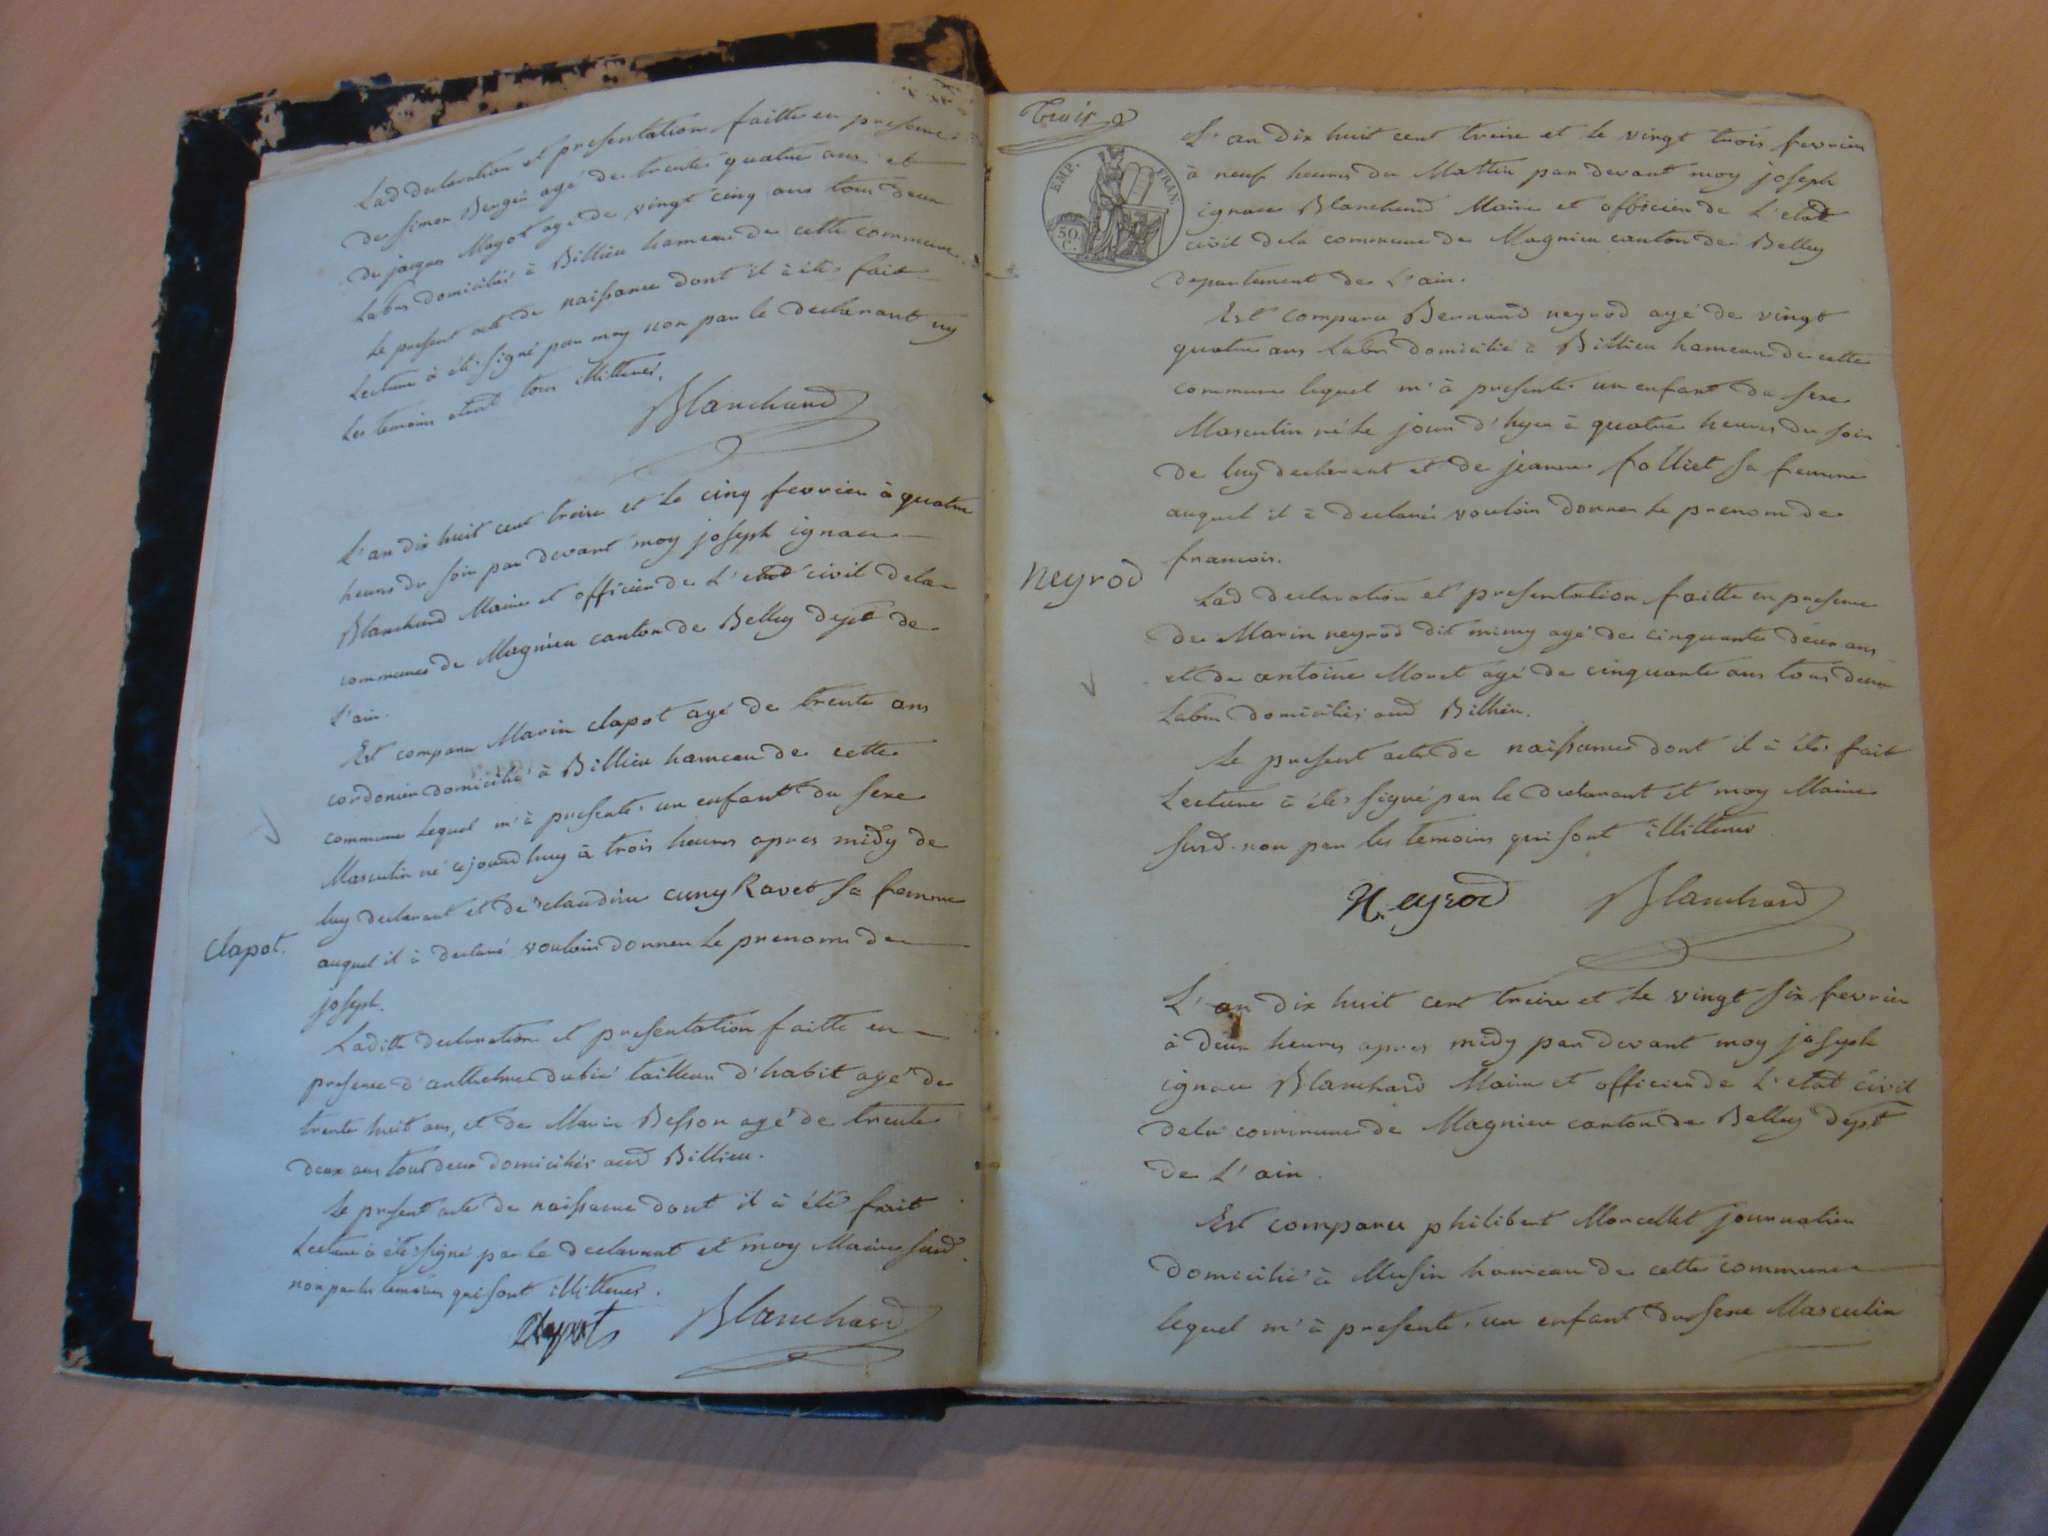 Lad declaration et presentation faitte en presence
de Simon Bengin agé de trente quatre ans et
de jacques Magot agé de vingt cinq ans tous deux
Labrs domiciliés à Billieu hameau de cette commune.
Le present acte de naissance dont il à étés fait
Lecture à été signé par moy non par le declarant ny
Les temoins etant tous illitterés.
Blanchard
L'an dix huit cent treize et le cinq fevrier à quatre
heures du soir par devant moy joseph ignace
Blanchard Maire et officier de L'etat civil dela
commune de Magnieu canton de Belley dept de
L'ain.
Est comparu Marin clapot agé de trente ans
cordonier domicilié à Billieu hameau de cette
commune Lequel m'à presenté un enfant du sexe
Masculin né cejourdhuy à trois heures apres midy de
luy declarant et de claudine cuny Ravet sa femme
auquel il à declaré vouloir donner le prenom de
joseph.
clapot.
Laditte declaration et presentation faitte en
presence d'anthelme dubié tailleur d'habit agé de
trente huit ans, et de Marin Besson agé de trente
deux ans tous deux domiciliés aud Billieu.
Le present acte de naissance dont il à été fait
Lecture à été signé par le declarant et moy Maire susd.
non par les temoins qui sont illitterés.
Clapot Blanchard
Trois
EMP. FRAN.
50 C.
L'an dix huit cent treize et le vingt trois fevrier
à neuf heures du Mattin par devant moy joseph
ignace Blanchard Maire et officier de L'etat
civil dela commune de Magnieu canton de Belley
departement de L'ain.
Est comparu Bernard neyrod agé de vingt
quatre ans Labr domicilié à Billieu hameau de cette
commune lequel m'à presenté un enfant du sexe
Masculin né le jour d'hyer à quatre heures du soir
de luy declarant et de jeanne folliet sa femme
auquel il à declaré vouloir donner le prenom de
francois.
neyrod
Lad declaration et presentation faitte en presence
de Marin neyrod dit mimy agé de cinquante deux ans
et de antoine Moret agé de cinquante ans tous deux
Labrs domiciliés aud Billieu.
Le present acte de naissance dont il à étés fait
Lecture à étés signé par le declarant et moy Maire
susd. non par les temoins qui sont illitterés
Neyrod Blanchard
L'an dix huit cent treize et le vingt six fevrier
à deux heures apres midy par devant moy joseph
ignace Blanchard Maire et officier de L'etat civil
dela commune de Magnieu canton de Belley dept
de L'ain.
Est comparu philibert Morcellet journalier
domicilié à Musin hameau de cette commune
lequel m'à presenté un enfant du sexe Masculin